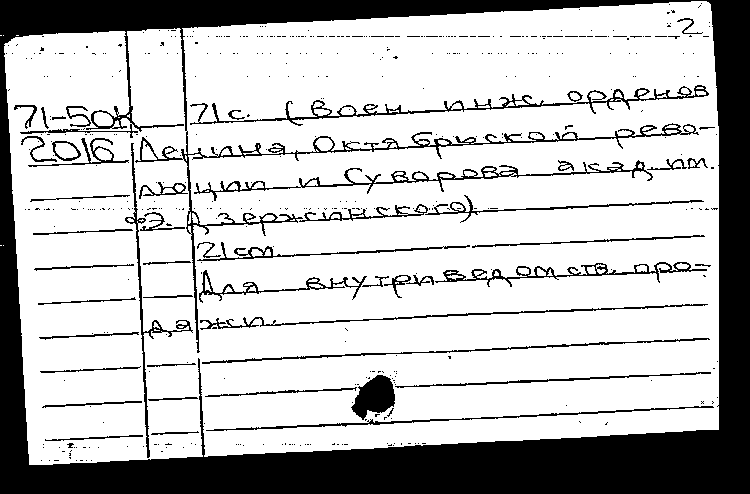 2
71-50К 71 с. (Воен. инж. орденов
2016 Ленина, Октябрьской рево-
люции и Суворова акад. им.
Ф.Э. Дзержинского)
21 см.
Для внутриведомств. про-
дажи.